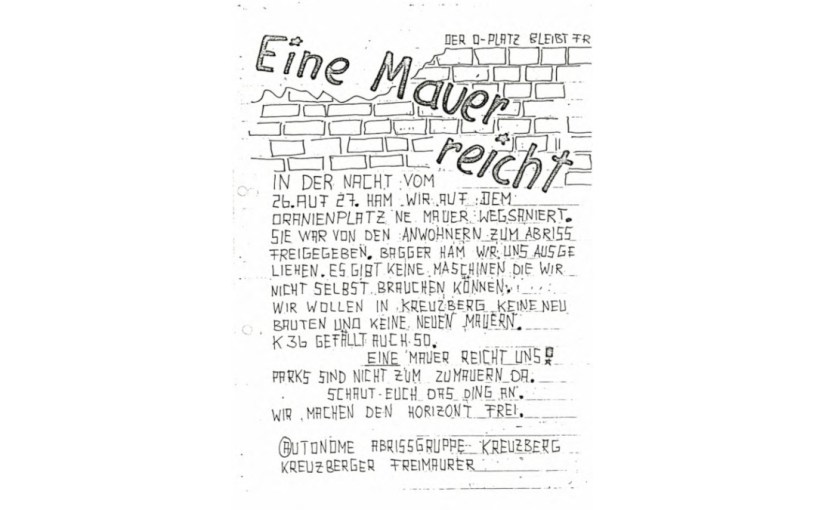 DER O-PLATZ BLEIBT FR
Eine Mauer
reicht
IN DER NACHT VOM
26. AUF 27. HAM WIR AUF DEM
ORANIENPLATZ 'NE MAUER WEGSANIERT.
SIE WAR VON DEN ANWOHNERN ZUM ABRISS
FREIGEGEBEN. BAGGER HAM WIR UNS AUSGE
LIEHEN. ES GIBT KEINE MASCHINEN DIE WIR
NICHT SELBST BRAUCHEN KÖNNEN.
WIR WOLLEN IN KREUZBERG KEINE NEU
BAUTEN UND KEINE NEUEN MAUERN.
K 36 GEFÄLLT AUCH SO.
EINE MAUER REICHT UNS!
PARKS SIND NICHT ZUM ZUMAUERN DA.
SCHAUT EUCH DAS DING AN.
WIR MACHEN DEN HORIZONT FREI.
AUTONOME ABRISSGRUPPE KREUZBERG
KREUZBERGER FREIMAURER